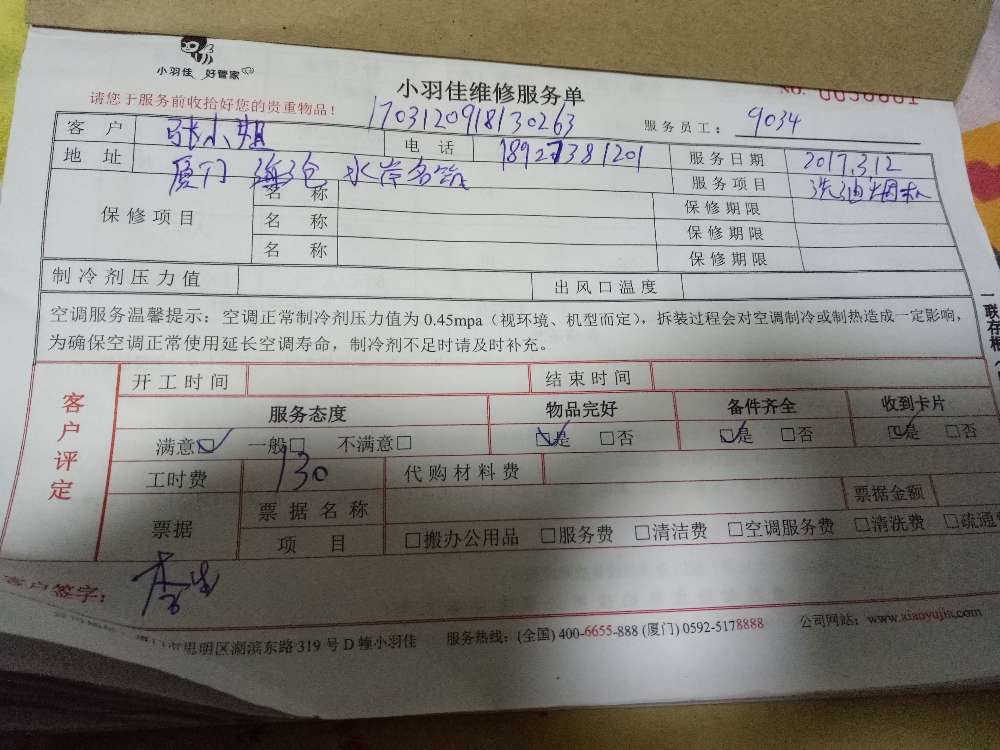 小羽佳 好管家
小羽佳维修服务单
请您于服务前收拾好您的贵重物品！
1703120918130263
服务员工： 9034
客户 张小姐 电话 18927381201 服务日期 2017.3.12
地址 厦门 海沧 水岸名筑 服务项目 洗油烟机
保修项目 名称 保修期限
名称 保修期限
名称 保修期限
制冷剂压力值 出风口温度
空调服务温馨提示：空调正常制冷剂压力值为 0.45mpa（视环境、机型而定），拆装过程会对空调制冷或制热造成一定影响，
为确保空调正常使用延长空调寿命，制冷剂不足时请及时补充。
客户评定
开工时间 结束时间
服务态度 物品完好 备件齐全 收到卡片
满意☑ 一般□ 不满意□ ☑是 □否 ☑是 □否 ☑是 □否
工时费 130 代购材料费
票据 票据名称 票据金额
项目 □搬办公用品 □服务费 □清洁费 □空调服务费 □清洗费 □疏通
客户签字： 李生
思明区湖滨东路 319 号 D 幢小羽佳 服务热线：(全国) 400-6655-888 (厦门) 0592-5178888 公司网站：www.xiaoyujia.com
一联存根